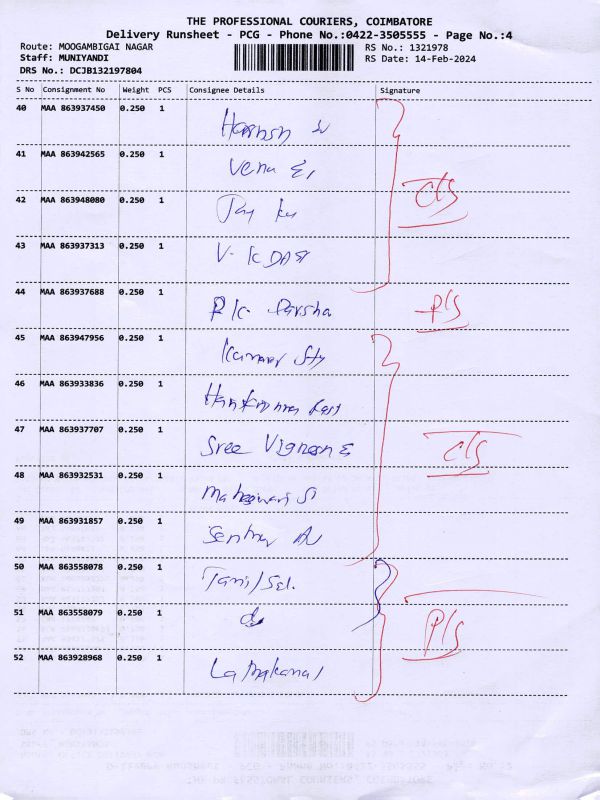 THE PROFESSIONAL COURIERS, COIMBATORE
Delivery Runsheet - PCG - Phone No.:0422-3505555 - Page No.:4
Route: MOOGAMBIGAI NAGAR RS No.: 1321978
Staff: MUNIYANDI RS Date: 14-Feb-2024
DRS No.: DCJB132197804
S No Consignment No Weight PCS Consignee Details Signature
40 MAA 863937450 0.250 1
41 MAA 863942565 0.250 1
42 MAA 863948080 0.250 1 C/S
43 MAA 863937313 0.250 1 V. K DASS
44 MAA 863937688 0.250 1 P/S
45 MAA 863947956 0.250 1
46 MAA 863933836 0.250 1
47 MAA 863937707 0.250 1 Sree Vignesh E C/S
48 MAA 863932531 0.250 1 Maheswari S
49 MAA 863931857 0.250 1
50 MAA 863558078 0.250 1 Tamil Sel.
51 MAA 863558079 0.250 1 do P/S
52 MAA 863928968 0.250 1